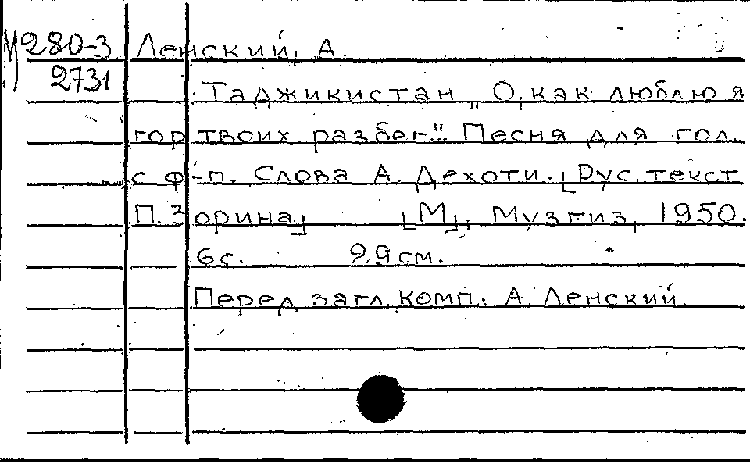 М280-3 Ленский, А.
2731 Таджикистан „О, как люблю я
гор твоих разбег." Песня для гол.
с ф-п. Слова А. Дехоти. [Рус. текст
П. Зорина] [М], Музгиз, 1950.
6 с. 29 см.
Перед загл. комп. А. Ленский.